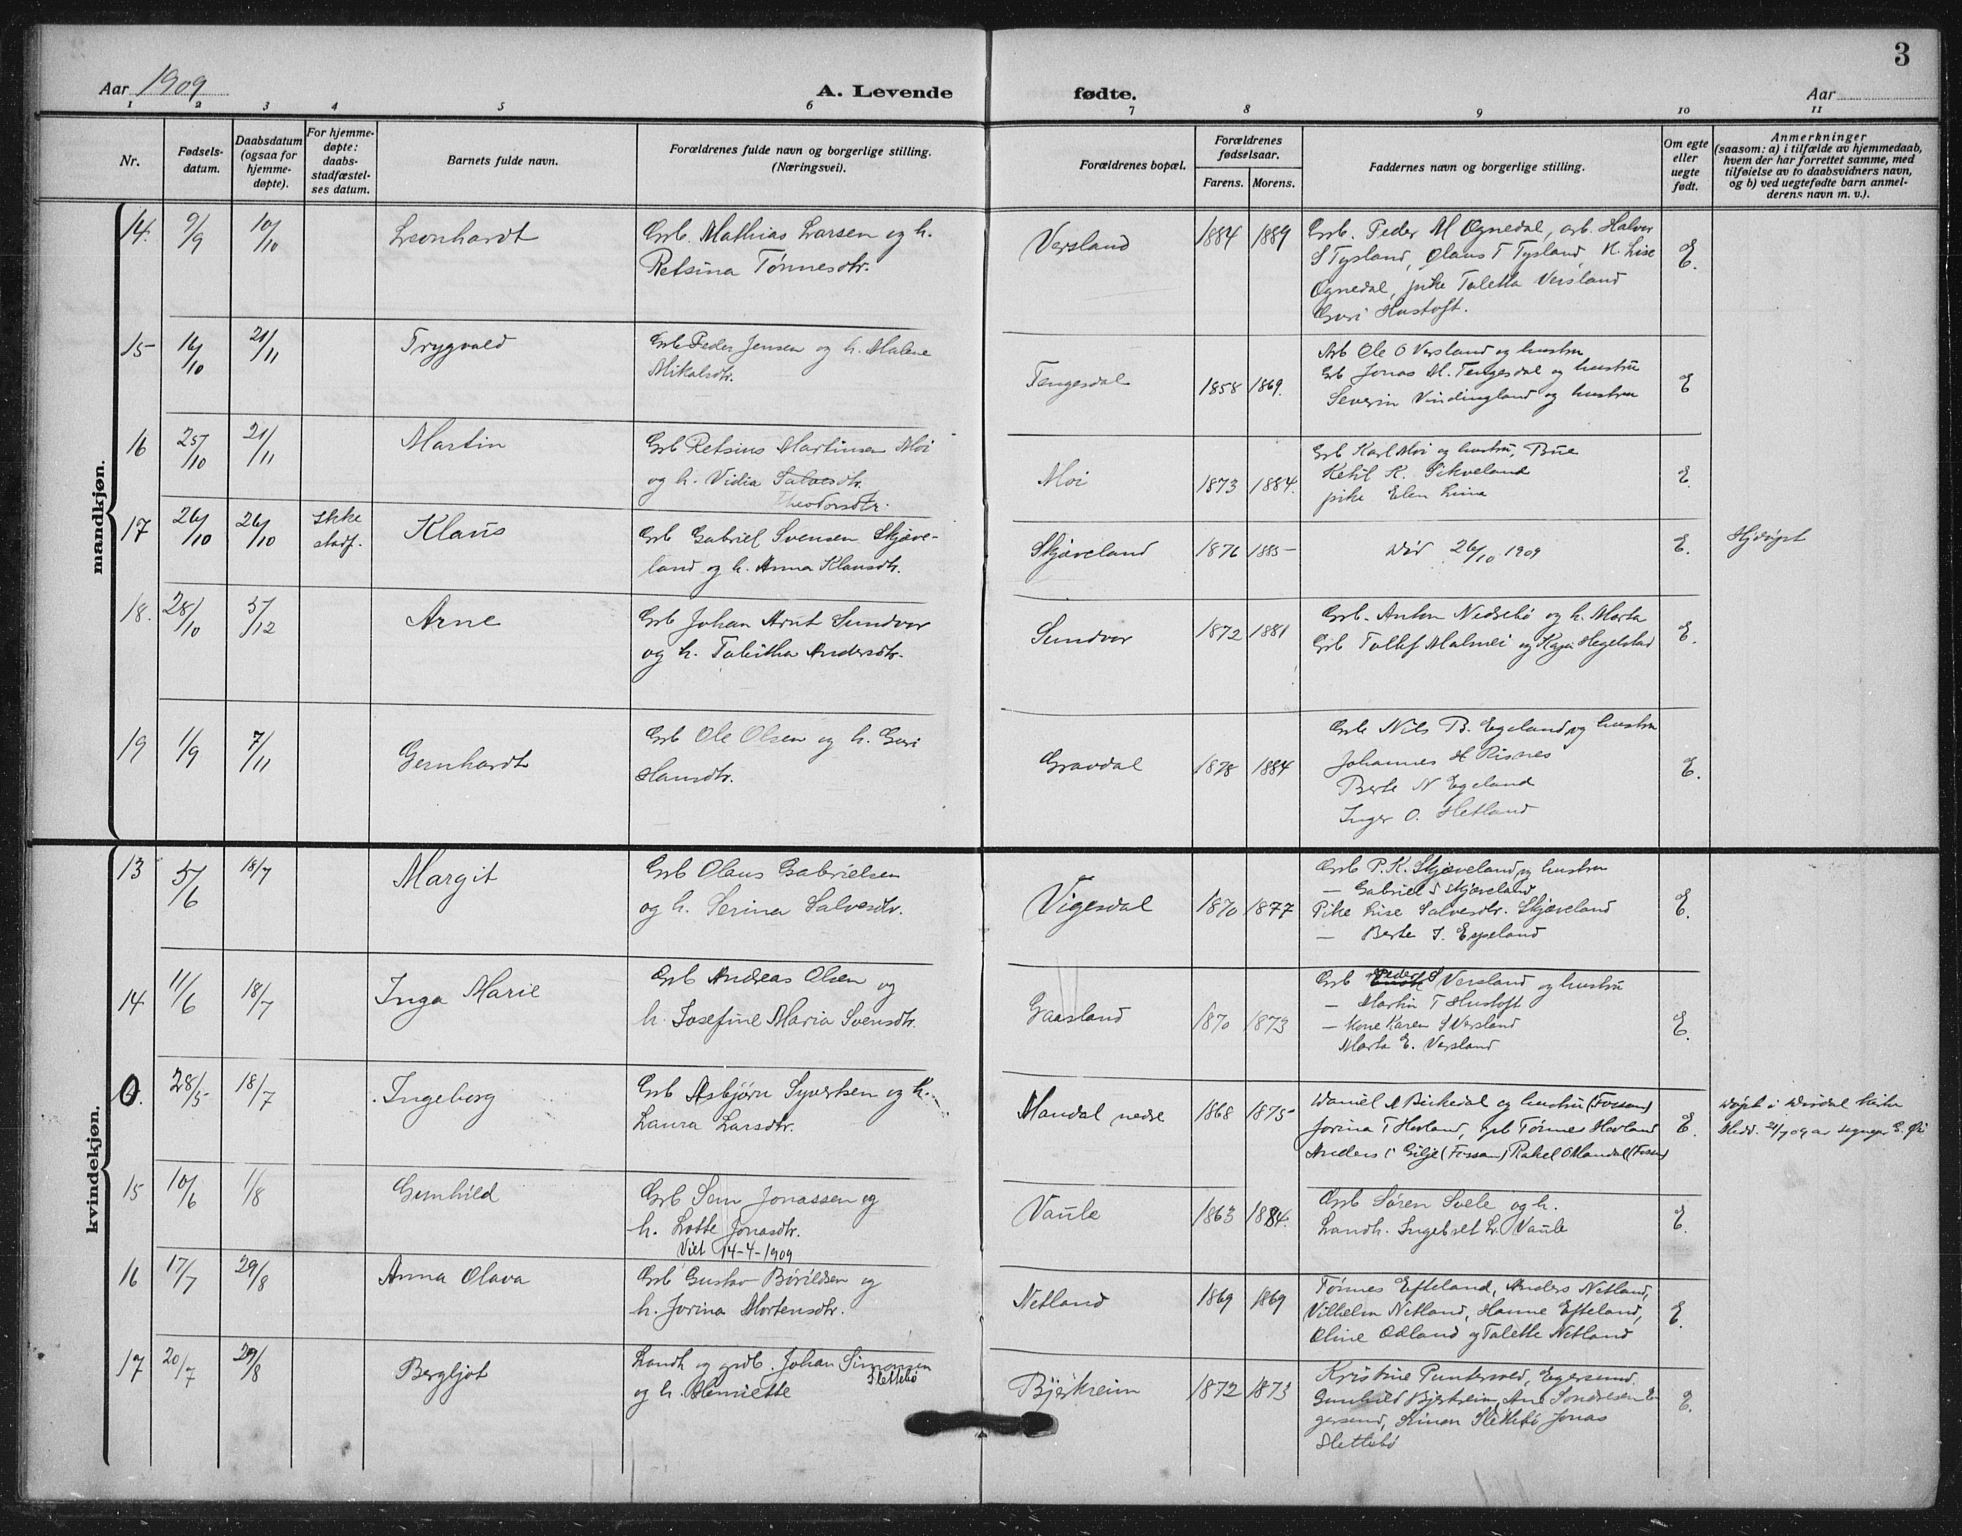 3
Aar 1909
A. Levende fødte.
Aar
1 2 3 4 5 6 7 8 9 10 11
Nr.
Fødsels-
datum.
Daabsdatum
(ogsaa for
hjemme-
døpte).
For hjemme-
døpte:
daabs-
stadfæstel-
ses datum.
Barnets fulde navn.
Forældrenes fulde navn og borgerlige stilling.
(Næringsvei).
Forældrenes bopæl.
Forældrenes
fødselsaar.
Farens. Morens.
Faddernes navn og borgerlige stilling.
Om egte
eller
uegte
født.
Anmerkninger
(saasom: a) i tilfælde av hjemmedaab,
hvem der har forrettet samme, med
tilføielse av to daabsvidners navn,
og b) ved uegtefødte barn anmel-
derens navn m. v.).
mandkjøn.
14. 9/9 10/10 Leonhardt
Grb. Mathias Larsen og h.
Retsina Tønnesdtr.
Versland 1884 1889
Grb. Peder M Ognedal, arb. Halvor
S Tysland, Olaus T Tysland, K. Lise
Ognedal, pike Taletta Versland
Guri Hustoft.
E.
15 16/10 21/11 Trygvald
Grb Peder Jensen og h. Malene
Mikalsdtr.
Tengesdal 1858 1869.
Arb Ole O Versland og hustru
Grb Jonas M. Tengesdal og hustru
Severin Vindingland og hustru
E
16 25/10 21/11 Martin
Grb Retsius Martinsen Moi
og h. Vidia Salvesdtr.
Theodorsdtr.
Moi 1873 1884.
Grb Karl Moi og hustru, Bue
Ketil K. Sikveland
pike Elen Lina
E.
17 26/10 26/10 Ikke
stadf.
Klaus
Grb Gabriel Svensen Skjæve-
land og h. Anna Klausdtr.
Skjæveland 1876 1885
Død 26/10 1909
E. Hjdøpt
18. 28/10 5/12 Arne
Grb Johan Arnt Sundvor
og h. Tabitha Andersdtr.
Sundvor 1872 1881
Grb. Anton Nedrebø og h. Marta
Grb Tollef Malmei og Kaja Hegelstad
E.
19 1/9 7/11 Gernhardt
Grb Ole Olsen og h. Guri
Hansdtr.
Gravdal 1878 1884
Grb Nils B. Egeland og hustru
Johannes H Risnes
Berte N Egeland
Inger O. Hetland
E.
kvindekjøn.
13 5/6 18/7 Margit
Grb Olaus Gabrielsen
og h. Serina Salvesdtr.
Vigesdal 1870 1877
Grb P. K. Skjæveland og hustru
— Gabriel S Skjæveland
Pike Lise Salvesdtr. Skjæveland
— Berte I. Espeland
E.
14 11/6 18/7 Inga Marie
Grb Andreas Olsen og
h. Josefine Maria Svensdtr.
Gaasland 1870 1873
Grb Peder S Versland og hustru
— Martin T Hustoft
— Kone Karen S Versland
Marta E. Versland
E.
0. 28/5 18/7 Ingeborg
Grb Asbjørn Syvertsen og h.
Laura Larsdtr.
Mandal nedre 1868 1875
Daniel A Birkedal og hustru (Fossan)
Jorina T Hovland, grb Tønnes Hovland
Anders i Gilje (Fossan) Rakel O Mandal (Fossan)
E.
Døpt i Dirdal kirke
Medd. 21/7 09 av sogneprE. Øi
15 10/6 1/8 Gunhild
Grb Sem Jonassen og
h. Lotte Jonasdtr.
Viet 14-4-1909
Vaule 1863 1884.
Grb Søren Svele og h.
Landh. Ingebret L. Vaule
E.
16 17/7 29/8 Anna Olava
Grb Gustav Børildsen og
h. Jorina Mortensdtr.
Netland 1869 1869
Tønnes Efteland, Anders Netland,
Vilhelm Netland, Hanne Efteland,
Oline Odland og Talette Netland
E.
17 20/7 29/8 Bergljot
Landh og grdb. Johan Simonsen
Slettebø
og h. Henriette
Bjerkreim 1872 1873
Kristine Puntervold, Egersund.
Gunhild Bjerkreim, Ane Sondresen E-
gersund, Simon Slettebø Jonas
Slettebø
E.